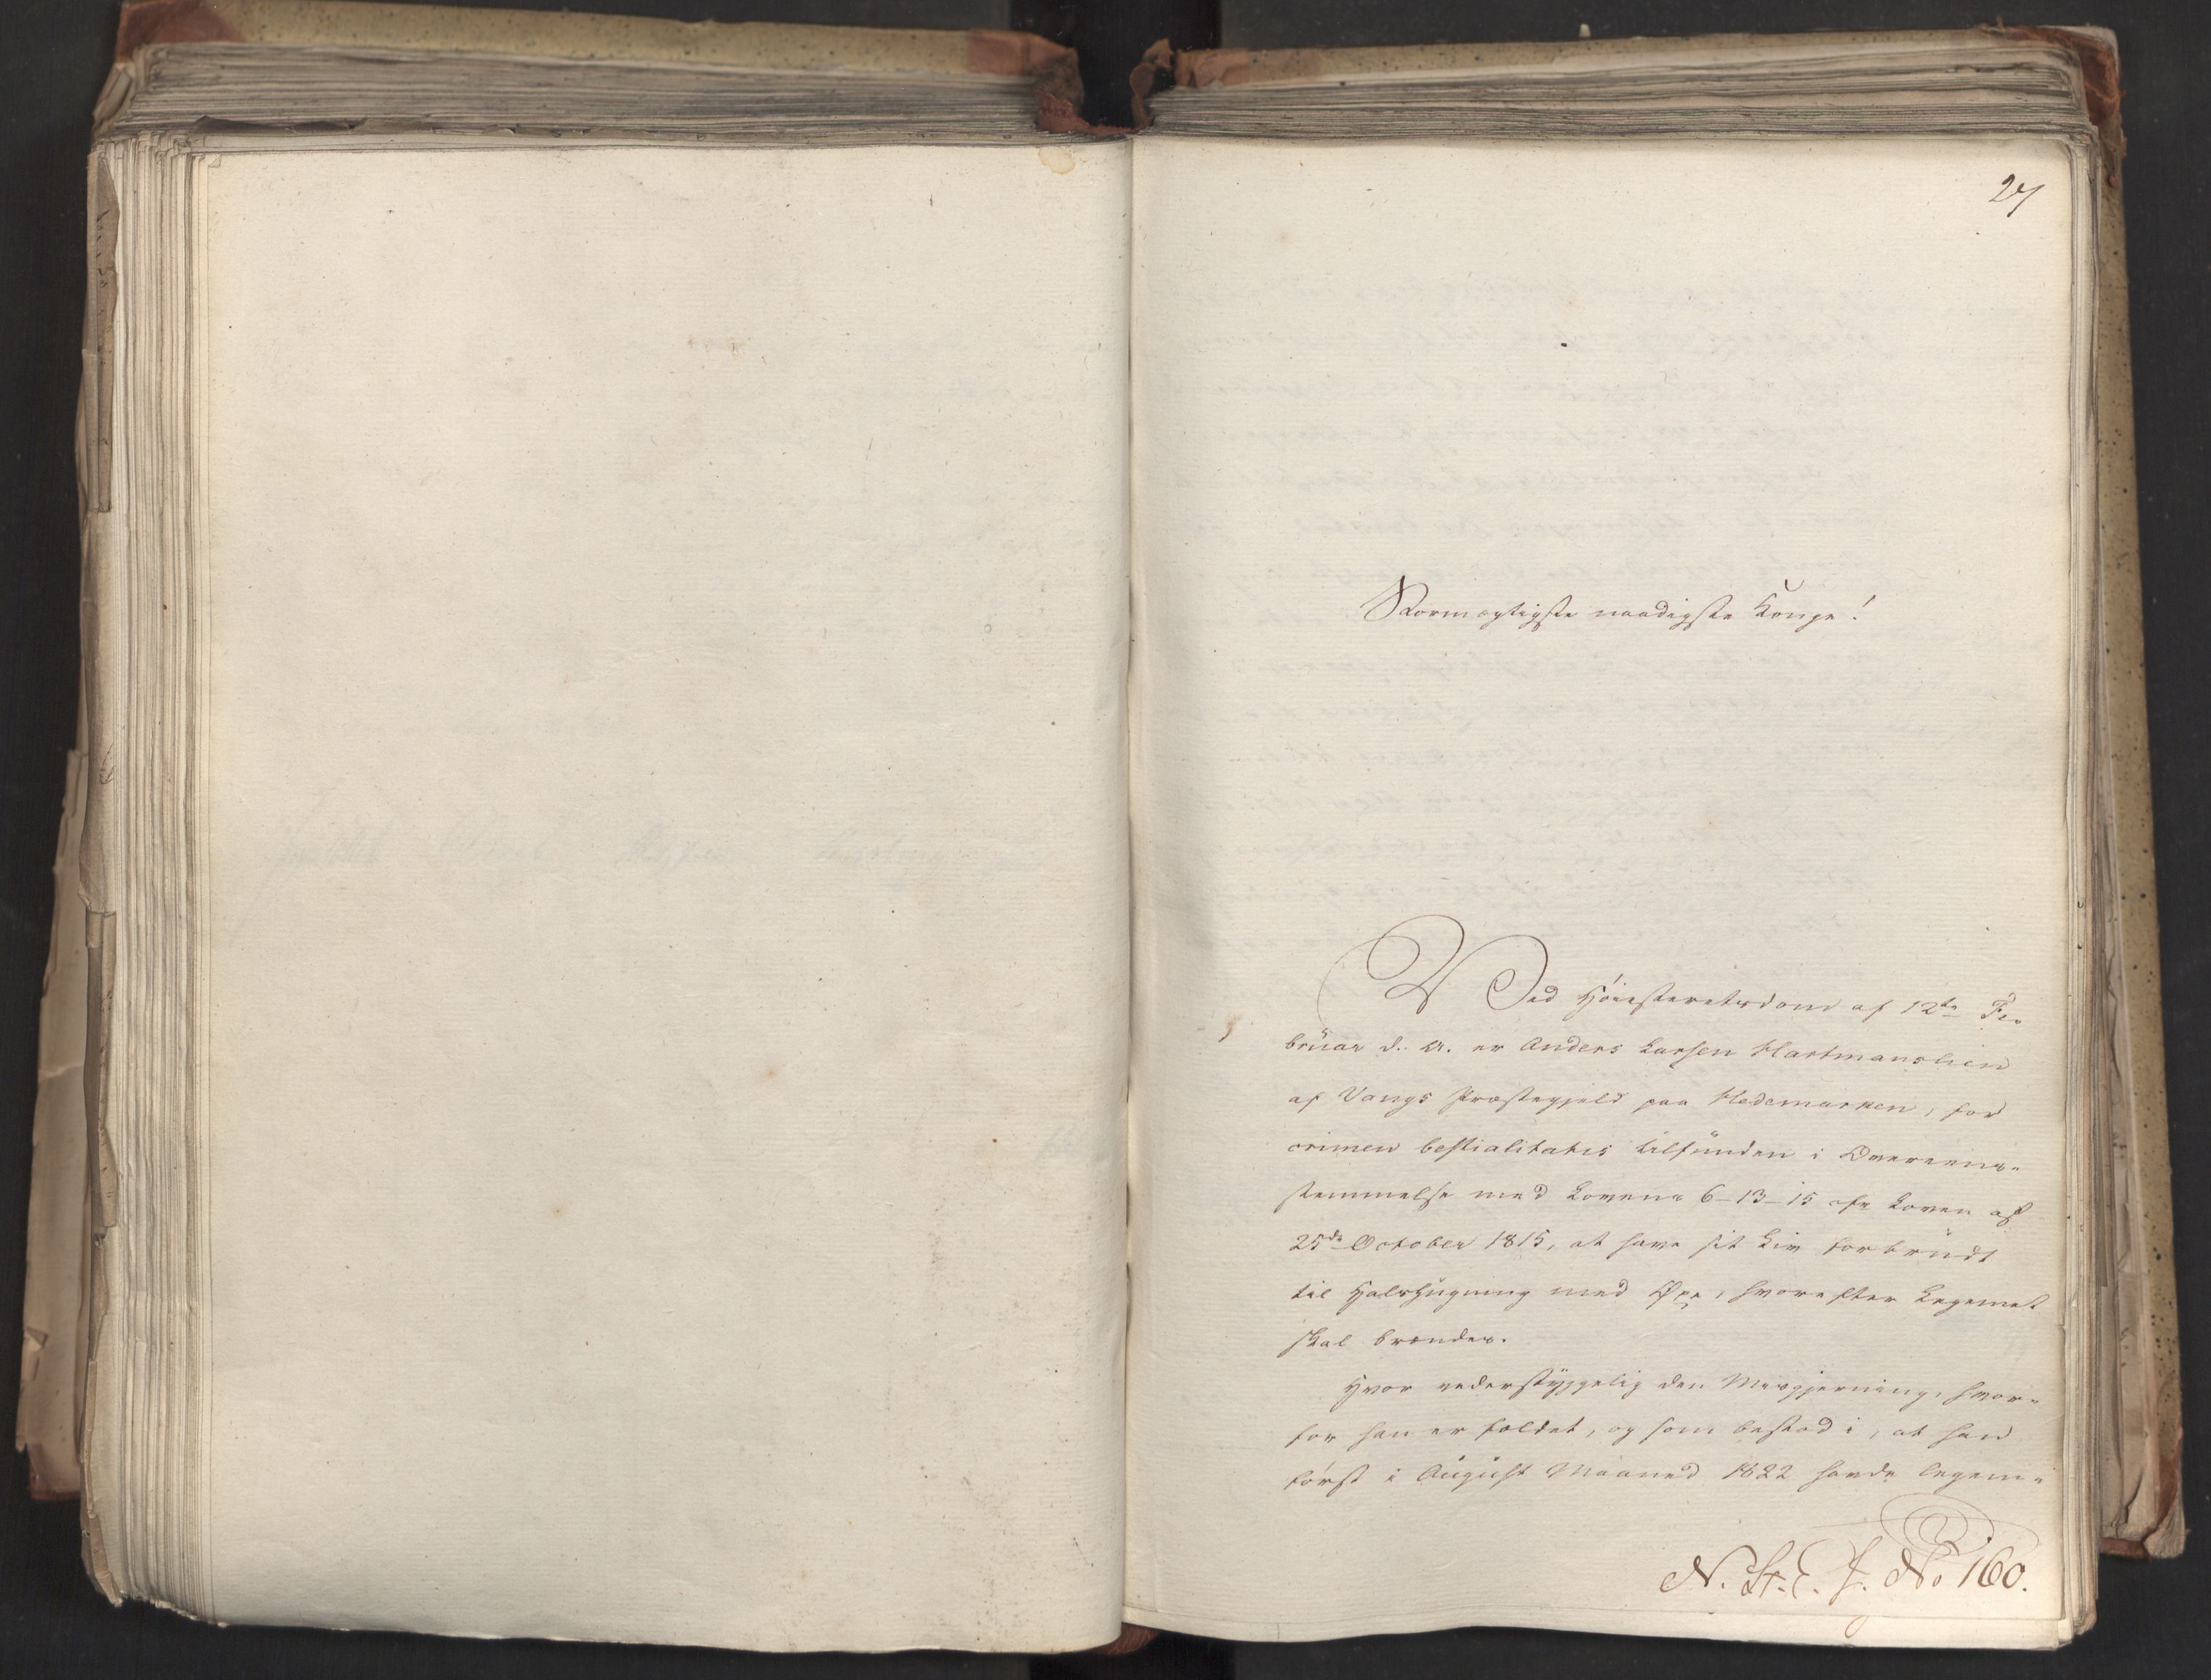 27
Stormægtigste naadigste Konge!
Ved Høiesteretsdom af 12te Fe-
bruar d. A. er Anders Larsen Hartmanslien
af Vangs Præstegjeld paa Hedemarken, for
crimen bestialitatis tilfunden i Overeens-
stemmelse med Lovens 6-13-15 cfr Loven af
25de October 1815, at have sit Liv forbrudt
til Halshugning med Øxe, hvorefter Legemet
skal brændes.
Hvor vederstyggelig den Misgjerning, hvor-
for han er fældet, og som bestod i, at han
først i August Maaned 1822 havde legem-
N. St. E. J. No 160.